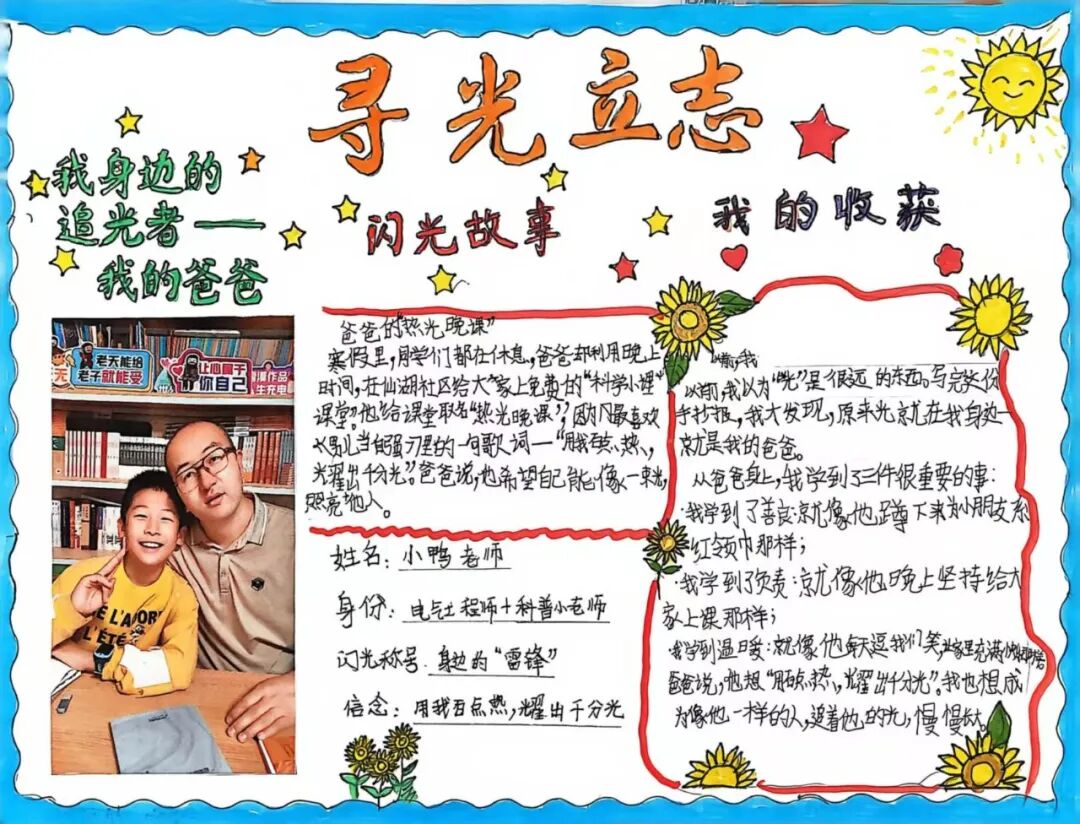 寻光立志
我身边的
追光者——
我的爸爸
老天能给
老子就能受
让心属于
你自己
闪光故事
爸爸的“热光晚课”
寒假里,同学们都在休息,爸爸却利用晚上
时间,在仙湖社区给大家上免费的“科学小课
课堂”。他给课堂取名“热光晚课”,因为最喜欢
《男儿当自强》里的一句歌词—“用我百点热,
光耀出千分光”。爸爸说,他希望自己能像一束光,
照亮他人。
姓名:小鸭老师
身份:电气工程师+科普小老师
闪光称号:身边的“雷锋”
信念:用我百点热,耀出千分光
我的收获
以前,我
以前,我以为“光”是很远的东西。写完这份
手抄报,我才发现,原来光就在我身边—
就是我的爸爸。
从爸爸身上,我学到了三件很重要的事:
·我学到了善良:就像他蹲下来为小朋友系
红领巾那样;
·我学到了负责:就像他晚上坚持给大
家上课那样;
·我学到温暖:就像他每天逗我们笑,让家里充满
爸爸说,他想“用百点热,耀出千分光”。我也想成
为像他一样的人,追着他的光,慢慢长大。